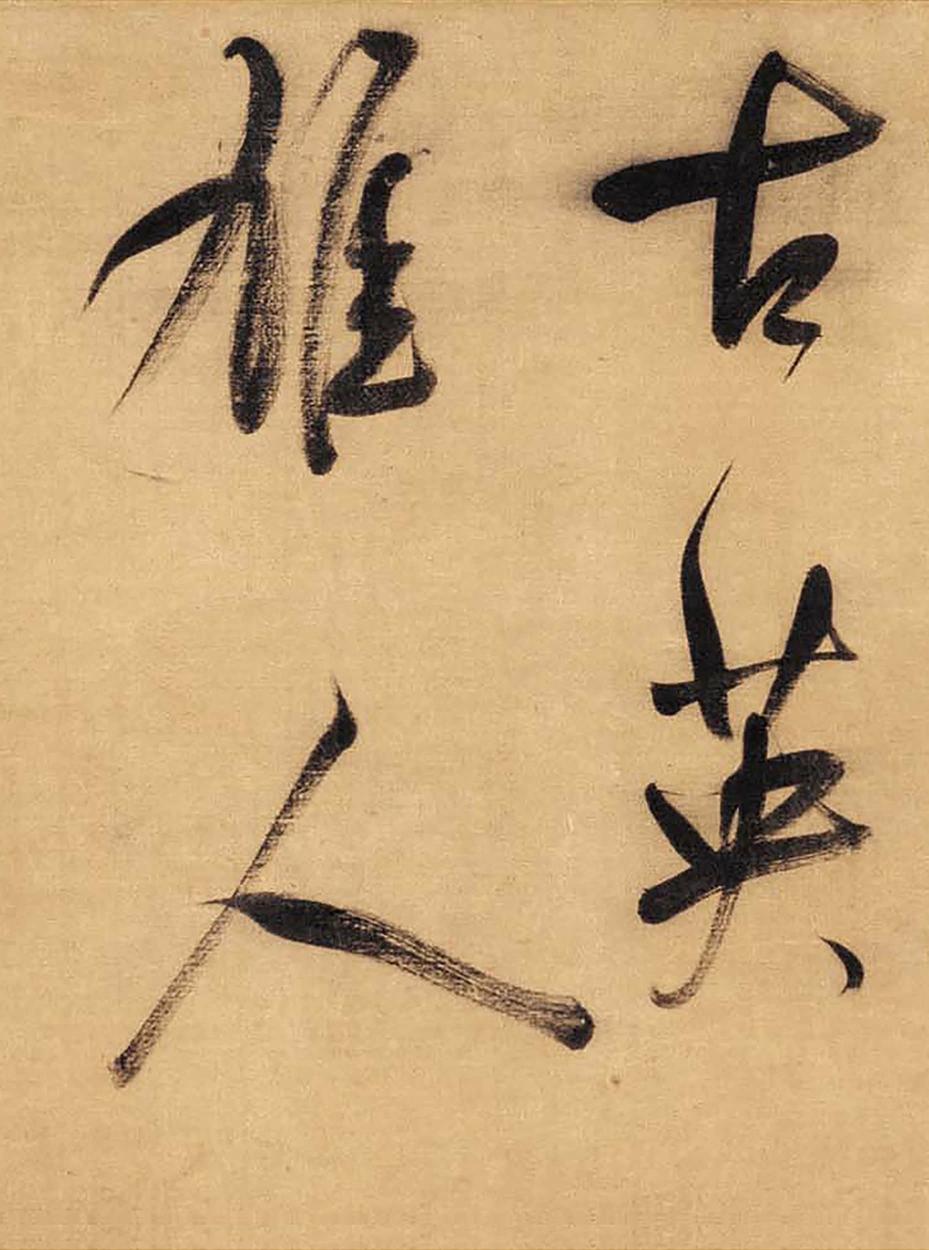 古英
雄人